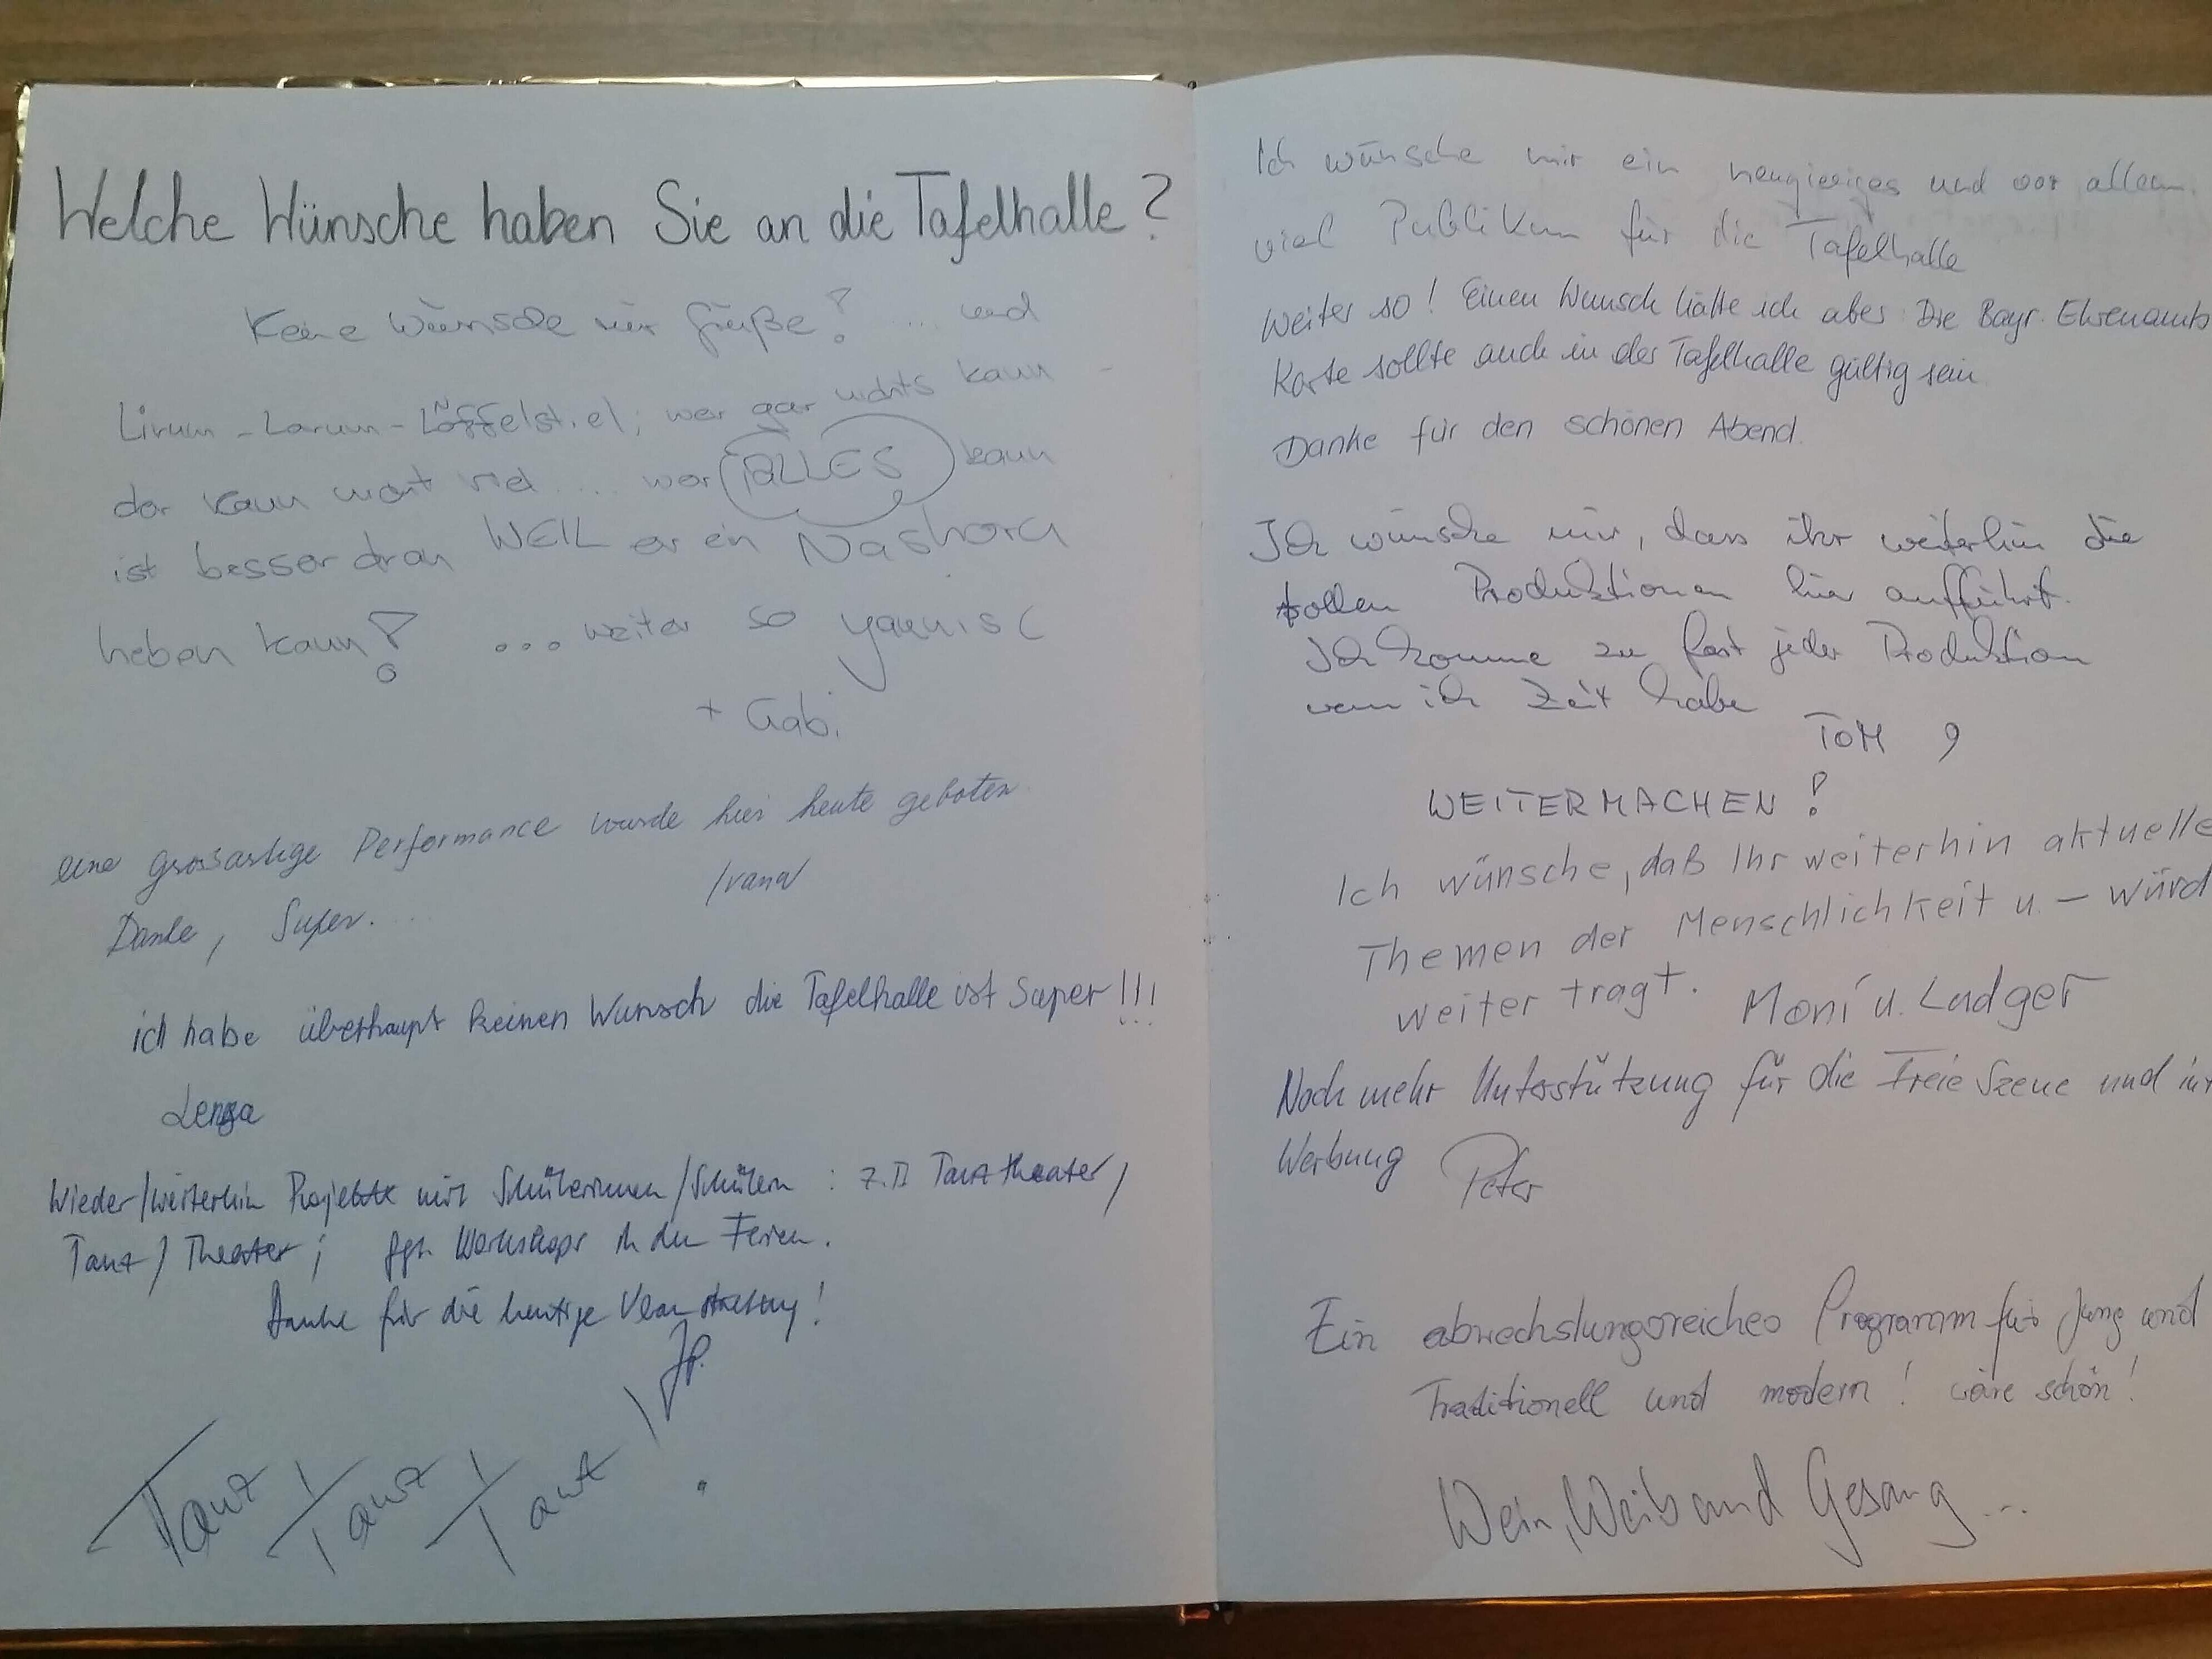 Welche Wünsche haben Sie an die Tafelhalle?
Keine Wünsche nur Grüße! ... und
Lirum-Larum-Löffelstiel; wer gar nichts kann -
der kann nicht viel ... wer ALLES kann
ist besser dran WEIL er ein Nashorn
heben kann! ...weiter so
+ Gabi
eine grossartige Performance wurde hier heute geboten
Danke, Super... Ivana
ich habe überhaupt keinen Wunsch die Tafelhalle ist Super!!!
Wieder/weiterhin Projekte mit Schülerinnen/Schülern : z.B Tanztheater/
Tanz/Theater; ggf. Workshops in den Ferien.
Danke für die heutige Veranstaltung!
JP.
Tanz! Tanz! Tanz!
Ich wünsche mir ein neugieriges und vor allem
viel Publikum für die Tafelhalle
Weiter so! Einen Wunsch hätte ich aber: Die Bayr. Ehrenamts
Karte sollte auch in der Tafelhalle gültig sein
Danke für den schönen Abend.
Ich wünsche mir, dass ihr weiterhin die
tollen Produktionen hier aufführt.
Ich komme zu fast jeder Produktion
wenn ich Zeit habe
TOM
WEITERMACHEN!
Ich wünsche, daß Ihr weiterhin aktuelle
Themen der Menschlichkeit u. - würd
weiter tragt. Moni u. Ludger
Noch mehr Unterstützung für die Freie Szene und in
Werbung Peter
Ein abwechslungsreiches Programm für Jung und
Traditionell und modern! wäre schön!
Wein, Weib und Gesang...